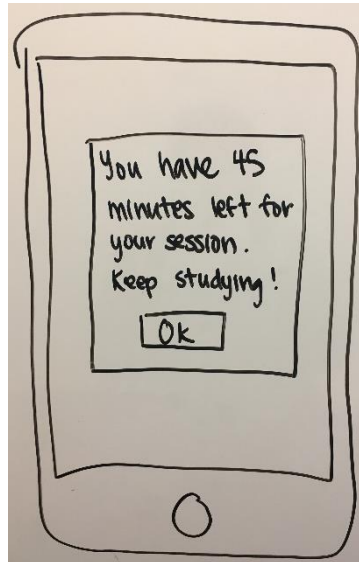 You have 45
minutes left for
your session.
Keep studying!
Ok